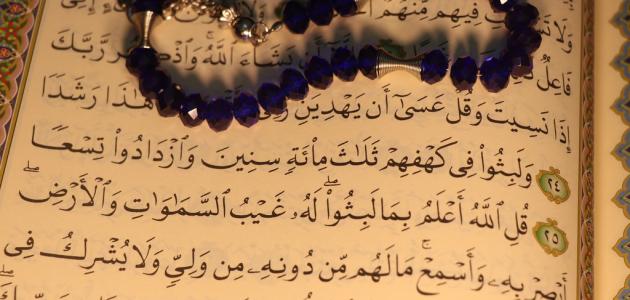 فِيهِم مِّنْهُمْ
أَن يَشَآءَ ٱللَّهُ وَٱذْكُر رَّبَّكَ
إِذَا نَسِيتَ وَقُلْ عَسَىٰٓ أَن يَهْدِيَنِ هَٰذَا رَشَدًا
٢٤ وَلَبِثُوا۟ فِى كَهْفِهِمْ ثَلَٰثَ مِا۟ئَةٍ سِنِينَ وَٱزْدَادُوا۟ تِسْعًا
٢٥ قُلِ ٱللَّهُ أَعْلَمُ بِمَا لَبِثُوا۟ۖ لَهُۥ غَيْبُ ٱلسَّمَٰوَٰتِ وَٱلْأَرْضِۖ
أَبْصِرْ بِهِۦ وَأَسْمِعْۚ مَا لَهُم مِّن دُونِهِۦ مِن وَلِىٍّ وَلَا يُشْرِكُ فِى